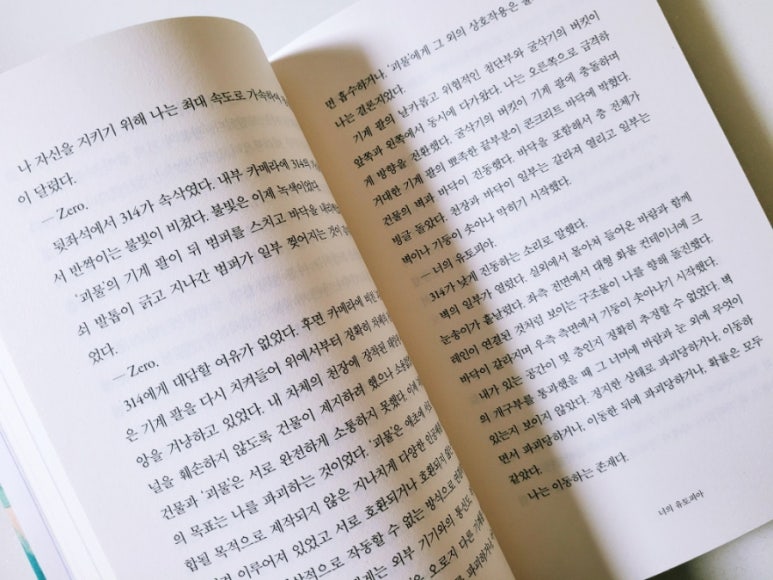 나 자신을 지키기 위해 나는 최대 속도로 가속하여
이 달렸다.
— Zero.
뒷좌석에서 314가 속삭였다. 내부 카메라에 314의
서 반짝이는 불빛이 비쳤다. 불빛은 이제 녹색이었다.
'괴물'의 기계 팔이 뒤 범퍼를 스치고 바닥을
쇠 발톱이 긁고 지나간 범퍼가 일부 찢어지는 것이
었다.
— Zero.
314에게 대답할 여유가 없었다. 후면 카메라에 비친
은 기계 팔을 다시 치켜들어 위에서부터 정확히
앙을 겨냥하고 있었다. 내 차체의 천장에 장착된
널을 훼손하지 않도록 건물이 제지하려 했으나
건물과 '괴물'은 서로 완전하게 소통하지 못했다.
의 목표는 나를 파괴하는 것이었다. '괴물'은 애초에
합될 목적으로 제작되지 않은 지나치게 다양한
이루어져 있었고 서로 호환되거나
상적으로 작동할 수 없는 방식으로
계는 외부 기기와의 통신도
오로지 다른 기계
를 파괴하거나
면 흡수하거나. '괴물'에게 그 외의 상호작용은
나는 결론지었다.
기계 팔의 날카롭고 위협적인 첨단부와 굴삭기의 버킷이
앞쪽과 왼쪽에서 동시에 다가왔다. 나는 오른쪽으로 급격하
게 방향을 전환했다. 굴삭기의 버킷이 기계 팔에 충돌하며
거대한 기계 팔의 뾰족한 끝부분이 콘크리트 바닥에 박혔다.
건물의 벽과 바닥이 진동했다. 바닥을 포함해서 층 전체가
빙글 돌았다. 천장과 바닥이 일부는 갈라져 열리고 일부는
벽이나 기둥이 솟아나 막히기 시작했다.
— 너의 유토피아.
314가 낮게 진동하는 소리로 말했다.
벽의 일부가 열렸다. 실외에서 몰아쳐 들어온 바람과 함께
눈송이가 흩날렸다. 좌측 전면에서 대형 화물 컨테이너에 크
레인이 연결된 것처럼 보이는 구조물이 나를 향해 돌진했다.
바닥이 갈라지며 우측 측면에서 기둥이 솟아나기 시작했다.
내가 있는 공간이 몇 층인지 정확히 추정할 수 없었다. 벽
의 개구부를 통과했을 때 그 너머에 바람과 눈 외에 무엇이
있는지 보이지 않았다. 정지한 상태로 파괴당하거나, 이동하
면서 파괴당하거나, 이동한 뒤에 파괴당하거나, 확률은 모두
같았다.
나는 이동하는 존재다.
너의 유토피아